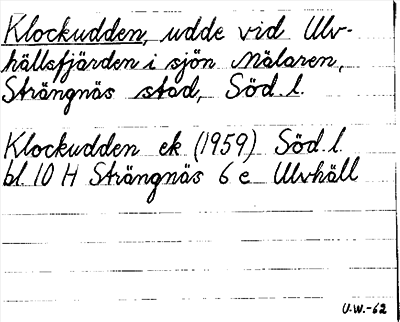 Klockudden, udde vid Ulv-
hällsfjärden i sjön Mälaren,
Strängnäs stad, Söd. l.
Klockudden ek (1959) Söd. l.
bl. 10 H Strängnäs 6 e Ulvhäll
U.W.-62